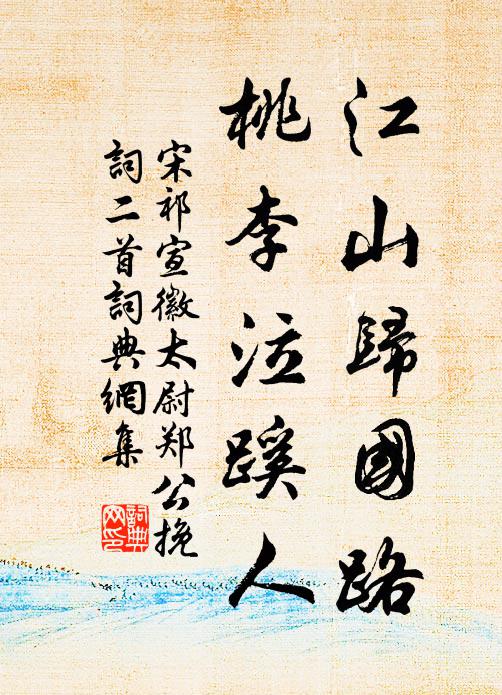 江山歸國路
桃李泣蹊人
宋祁宣徽太尉郑公挽
詞二首詞典網集
詞典
网印